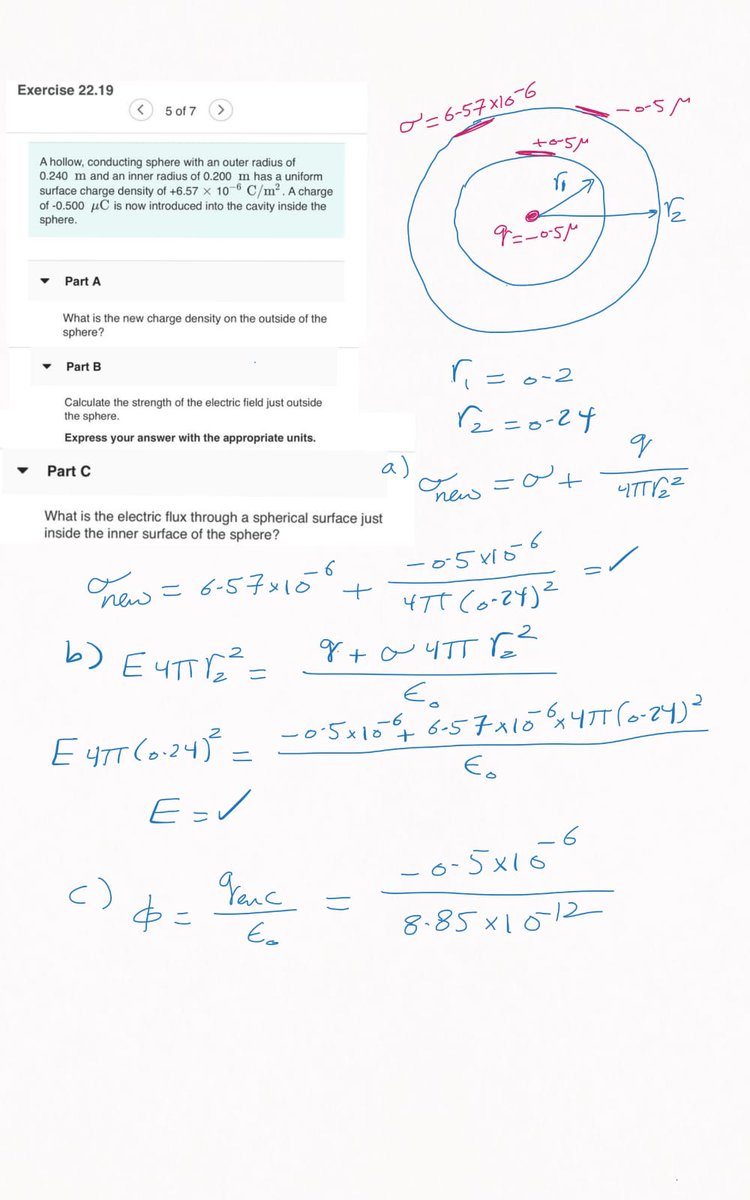 Exercise 22.19
< 5 of 7 >
A hollow, conducting sphere with an outer radius of
0.240 m and an inner radius of 0.200 m has a uniform
surface charge density of +6.57 × 10⁻⁶ C/m². A charge
of -0.500 μC is now introduced into the cavity inside the
sphere.
Part A
What is the new charge density on the outside of the
sphere?
Part B
Calculate the strength of the electric field just outside
the sphere.
Express your answer with the appropriate units.
Part C
What is the electric flux through a spherical surface just
inside the inner surface of the sphere?
σ = 6.57 × 10⁻⁶
-0.5 μ
+0.5 μ
r₁
r₂
q = -0.5 μ
r₁ = 0.2
r₂ = 0.24
a) σnew = σ + q / 4πr₂²
σnew = 6.57 × 10⁻⁶ + -0.5 × 10⁻⁶ / 4π (0.24)² = ✓
b) E 4π r₂² = q + σ 4π r₂² / ε₀
E 4π (0.24)² = -0.5 × 10⁻⁶ + 6.57 × 10⁻⁶ × 4π (0.24)² / ε₀
E = ✓
c) ϕ = qenc / ε₀ = -0.5 × 10⁻⁶ / 8.85 × 10⁻¹²